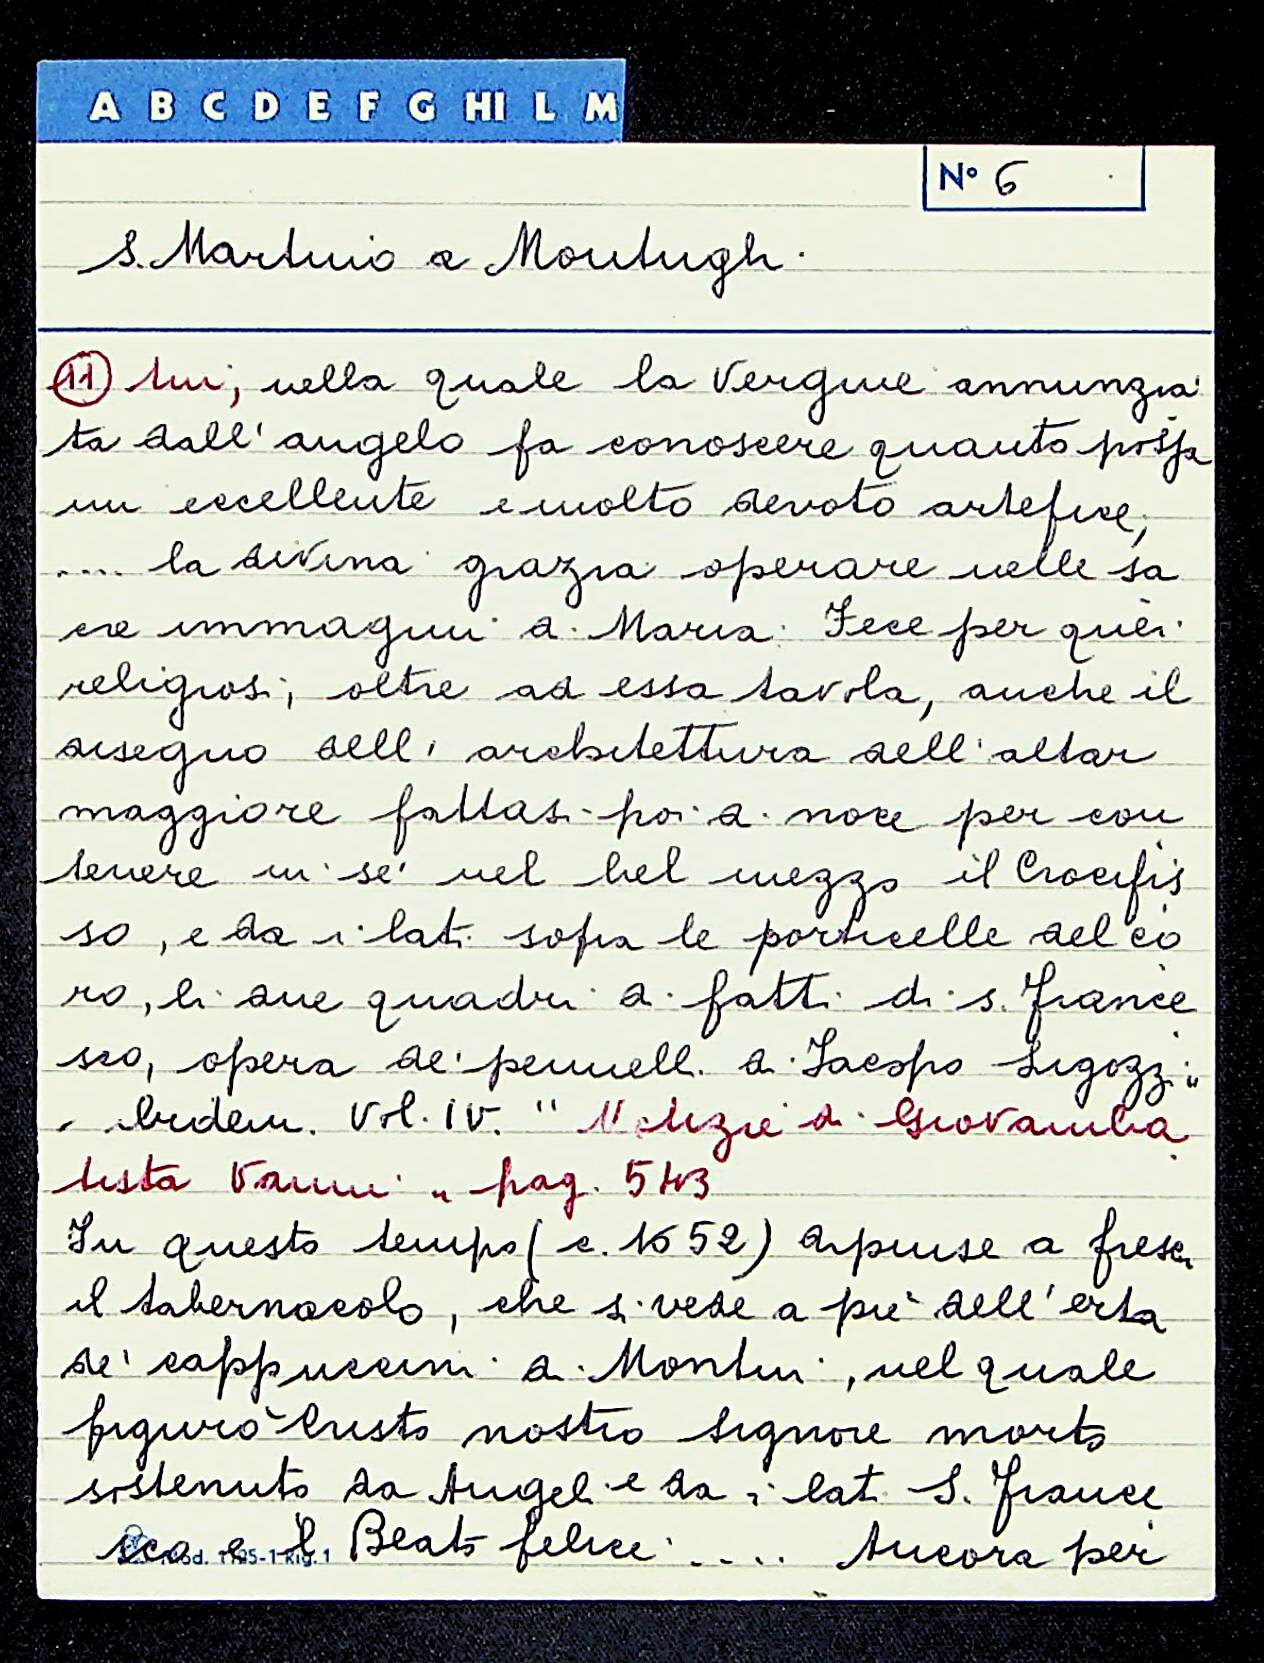 A B C D E F G HI L M
N° 6
S. Martino a Montughi
11 tui; nella quale la Vergine annunzia
ta dall'angelo fa conoscere quanto possa
un eccellente e molto devoto artefice,
.... la divina grazia operare nelle sa
cre immagini di Maria. Fece per quei
religiosi, oltre ad essa tavola, anche il
disegno dell'architettura dell'altar
maggiore fattasi poi di noce per con
tenere in sé nel bel mezzo il Crocifis
so, e da i lati sopra le porticelle del co
ro, li due quadri di fatti di s. France
sco, opera de' pennelli di Jacopo Ligozzi"
Ibidem. Vol. IV. "Notizie di Giovamba
tista Vanni" pag. 543
In questo tempo (c. 1652) dipinse a fresco
il tabernacolo, che si vede a piè dell'erta
de' cappuccini di Montui, nel quale
figurò Cristo nostro Signore morto
sostenuto da Angeli e da i lati S. France
sco e il Beato felice .... Ancora per
Mod. 1195-1 Rig. 1